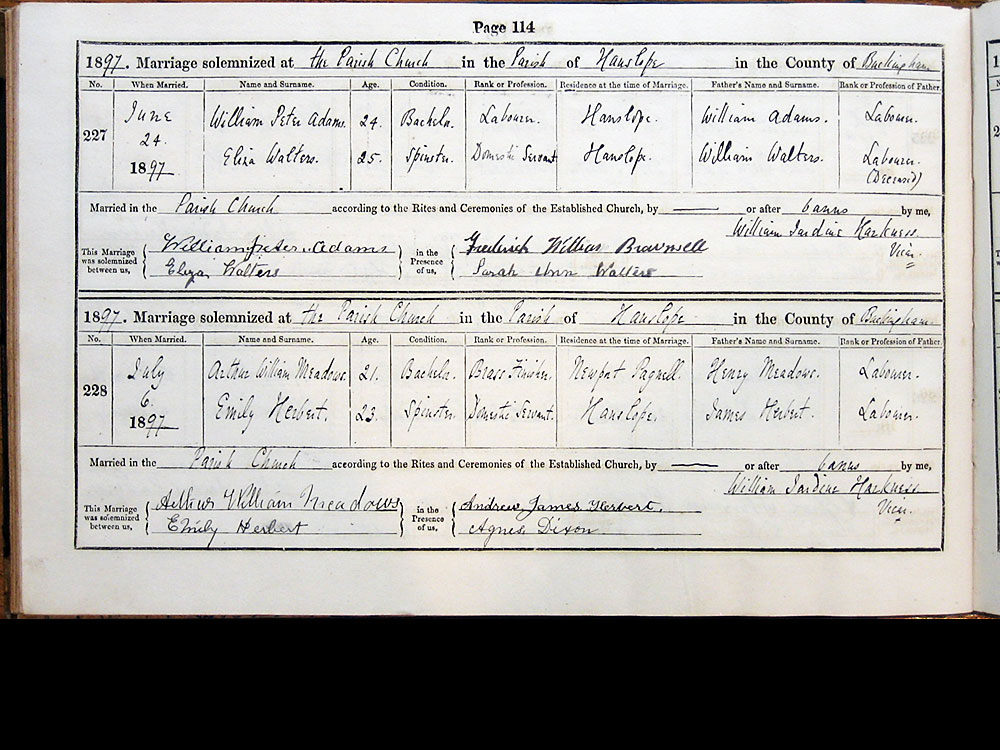 Page 114
1897. Marriage solemnized at the Parish Church in the Parish of Hanslope in the County of Buckingham
No. When Married. Name and Surname. Age. Condition. Rank or Profession. Residence at the time of Marriage. Father's Name and Surname. Rank or Profession of Father.
227 June 24. 1897 William Peter Adams. 24. Bachelr. Labourer. Hanslope. William Adams. Labourer.
Eliza Walters. 25. Spinster. Domestic Servant Hanslope. William Walters. Labourer. (Deceased)
Married in the Parish Church according to the Rites and Ceremonies of the Established Church, by — or after banns by me,
William Jardine Harkness
Vicar.
This Marriage was solemnized between us, William Peter Adams in the Presence of us, Frederick William Brownsell
Eliza Walters Sarah Ann Walters
1897. Marriage solemnized at the Parish Church in the Parish of Hanslope in the County of Buckingham.
No. When Married. Name and Surname. Age. Condition. Rank or Profession. Residence at the time of Marriage. Father's Name and Surname. Rank or Profession of Father.
228 July 6. 1897 Arthur William Meadows. 21. Bachelr. Brass Finisher. Newport Pagnell. Henry Meadows. Labourer.
Emily Herbert. 23. Spinster. Domestic Servant. Hanslope. James Herbert. Labourer.
Married in the Parish Church according to the Rites and Ceremonies of the Established Church, by — or after banns by me,
William Jardine Harkness
Vicar.
This Marriage was solemnized between us, Arthur William Meadows in the Presence of us, Andrew James Herbert.
Emily Herbert Agnes Dixon